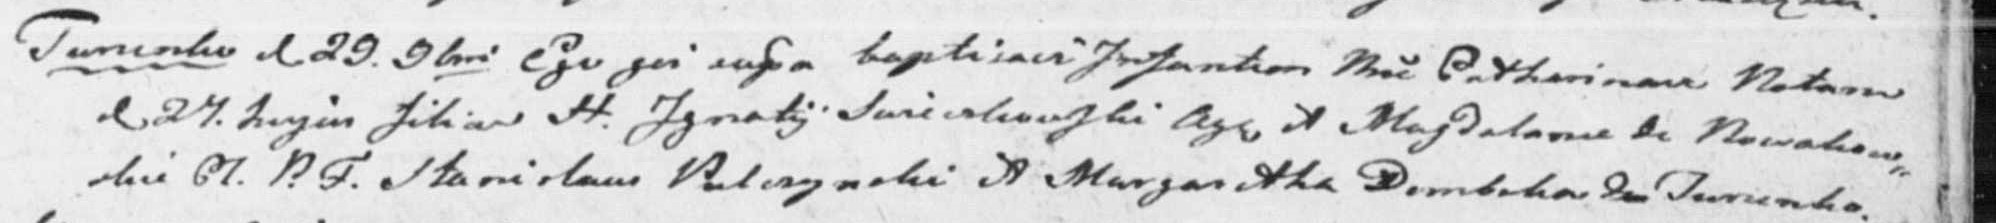 Turunko d 29. 9bri Ego qui supra baptisavi Infantem Noē Catharinam Natam
d 27. hujus filiam H. Ignatij Agr. et Magdalena de Nowakow„
skie C. P. F. Stanislaus Pulczynski et Margaretha Dombska de Turunko.